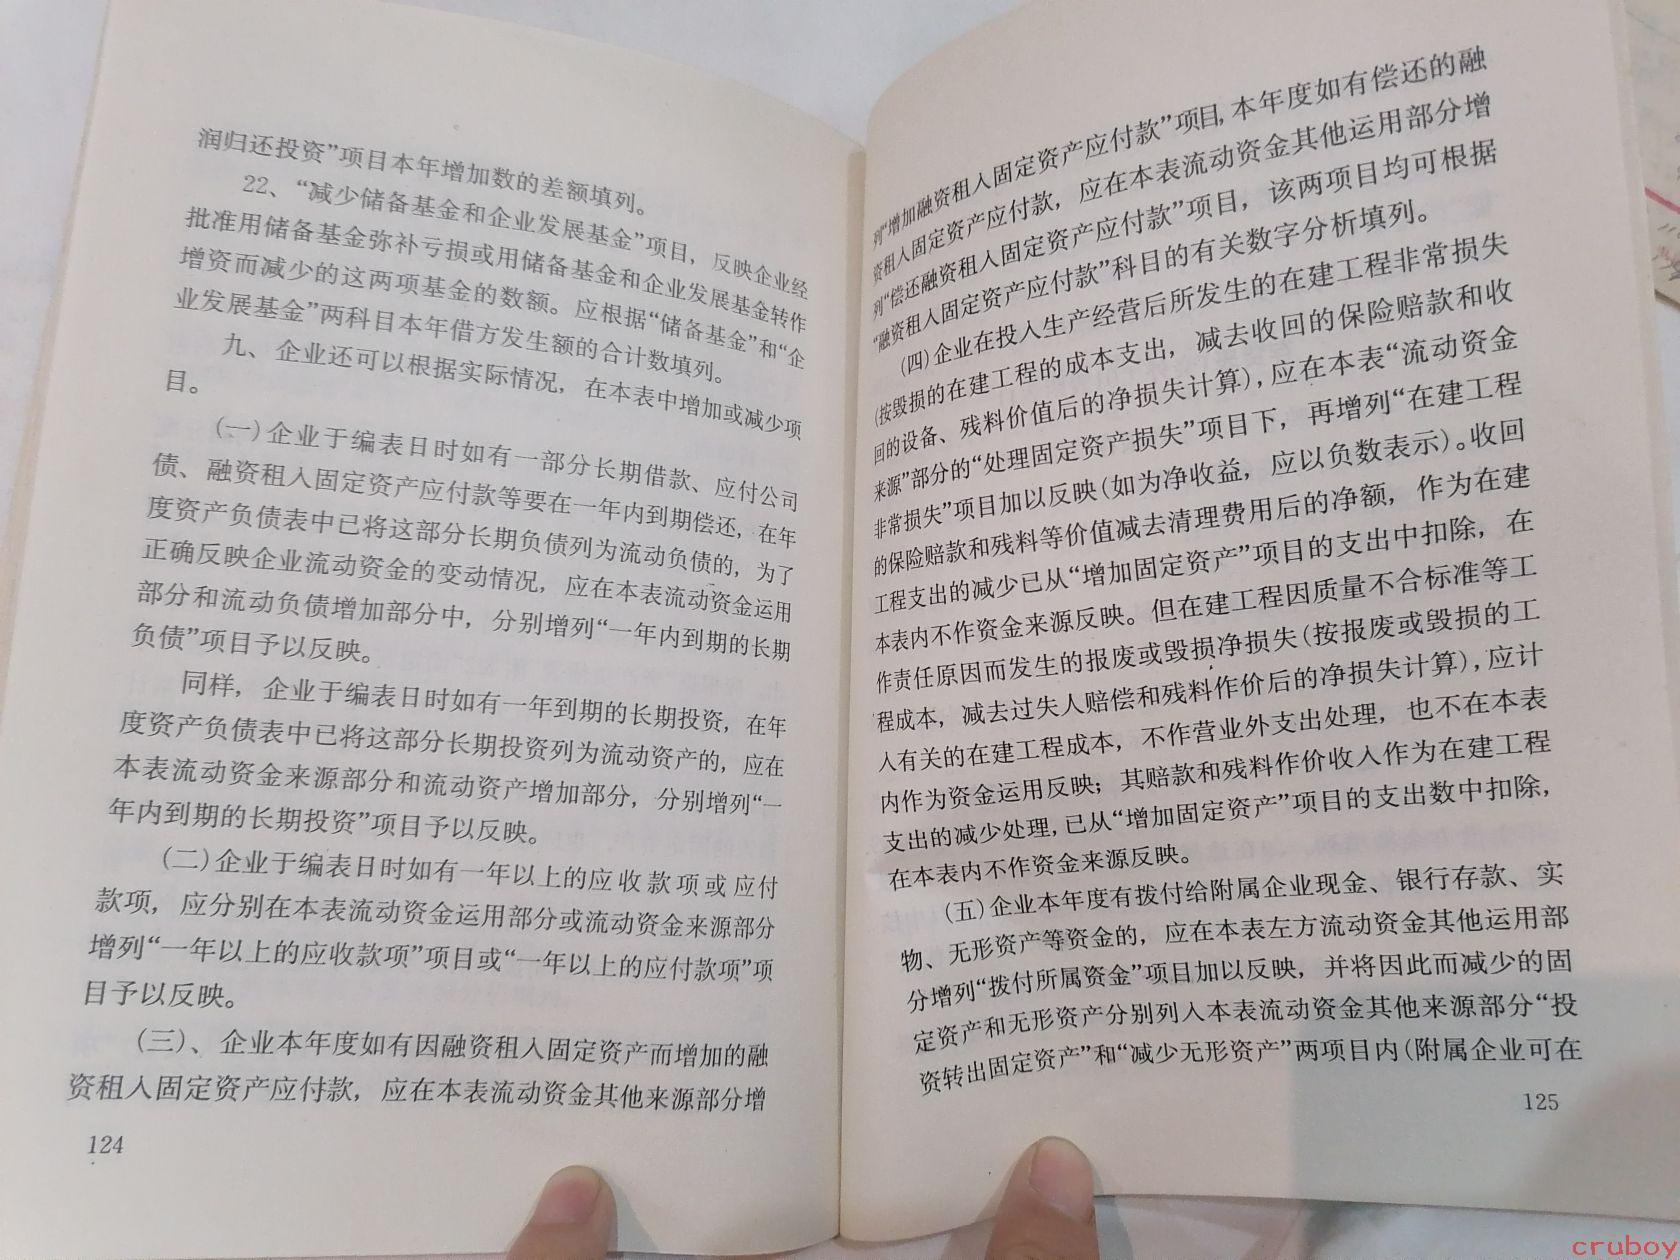 润归还投资”项目本年增加数的差额填列。
22、“减少储备基金和企业发展基金”项目，反映企业经
批准用储备基金弥补亏损或用储备基金和企业发展基金转作
增资而减少的这两项基金的数额。应根据“储备基金”和“企
业发展基金”两科目本年借方发生额的合计数填列。
九、企业还可以根据实际情况，在本表中增加或减少项
目。
(一)企业于编表日时如有一部分长期借款、应付公司
债、融资租入固定资产应付款等要在一年内到期偿还，在年
度资产负债表中已将这部分长期负债列为流动负债的，为了
正确反映企业流动资金的变动情况，应在本表流动资金运用
部分和流动负债增加部分中，分别增列“一年内到期的长期
负债”项目予以反映。
同样，企业于编表日时如有一年到期的长期投资，在年
度资产负债表中已将这部分长期投资列为流动资产的，应在
本表流动资金来源部分和流动资产增加部分，分别增列“一
年内到期的长期投资”项目予以反映。
(二)企业于编表日时如有一年以上的应收款项或应付
款项，应分别在本表流动资金运用部分或流动资金来源部分
增列“一年以上的应收款项”项目或“一年以上的应付款项”项
目予以反映。
(三)、企业本年度如有因融资租入固定资产而增加的融
资租入固定资产应付款，应在本表流动资金其他来源部分增
124
列“增加融资租入固定资产应付款”项目，本年度如有偿还的融
资租入固定资产应付款，应在本表流动资金其他运用部分增
列“偿还融资租入固定资产应付款”项目，该两项目均可根据
“融资租入固定资产应付款”科目的有关数字分析填列。
(四)企业在投入生产经营后所发生的在建工程非常损失
(按毁损的在建工程的成本支出，减去收回的保险赔款和收
回的设备、残料价值后的净损失计算)，应在本表“流动资金
来源”部分的“处理固定资产损失”项目下，再增列“在建工程
非常损失”项目加以反映(如为净收益，应以负数表示)。收回
的保险赔款和残料等价值减去清理费用后的净额，作为在建
工程支出的减少已从“增加固定资产”项目的支出中扣除，在
本表内不作资金来源反映。但在建工程因质量不合标准等工
作责任原因而发生的报废或毁损净损失(按报废或毁损的工
程成本，减去过失人赔偿和残料作价后的净损失计算)，应计
入有关的在建工程成本，不作营业外支出处理，也不在本表
内作为资金运用反映；其赔款和残料作价收入作为在建工程
支出的减少处理，已从“增加固定资产”项目的支出数中扣除，
在本表内不作资金来源反映。
(五)企业本年度有拨付给附属企业现金、银行存款、实
物、无形资产等资金的，应在本表左方流动资金其他运用部
分增列“拨付所属资金”项目加以反映，并将因此而减少的固
定资产和无形资产分别列入本表流动资金其他来源部分“投
资转出固定资产”和“减少无形资产”两项目内(附属企业可在
125
cruboy